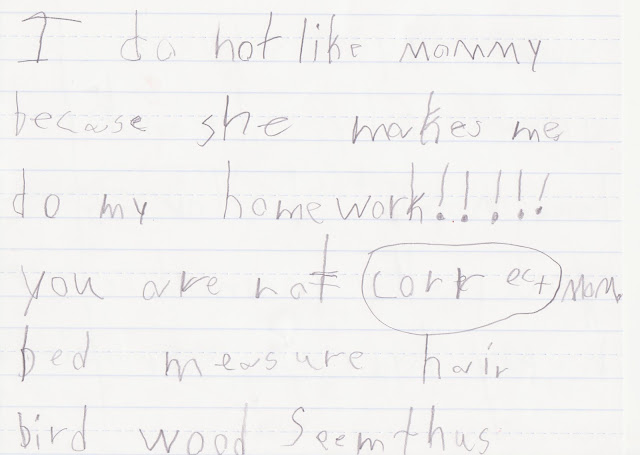 I do not like mommy
because she makes me
do my homework!!!!!
you are not correct Mom.
bed measure hair
bird wood Seemthus